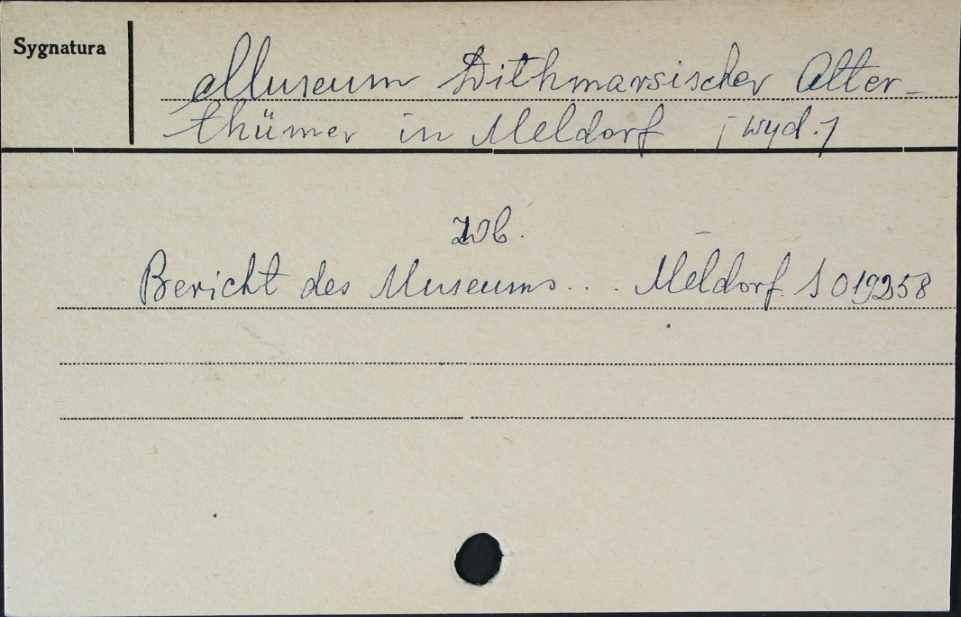 Sygnatura
Museum Dithmarsischer Alter-
thümer in Meldorf [wyd.]
zob.
Bericht des Museums... Meldorf S 019258